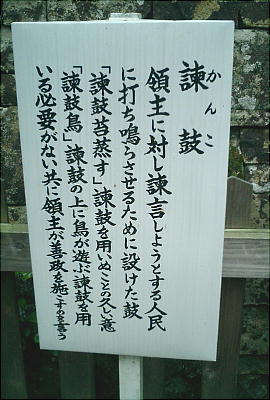 諫鼓
かんこ
領主に対し諫言しようとする人民
に打ち鳴らさせるために設けた鼓
「諫鼓苔蒸す」諫鼓を用いぬことの久しい意
「諫鼓鳥」諫鼓の上に鳥が遊ぶ諫鼓を用
いる必要がない共に領主が善政を施こすのを言う